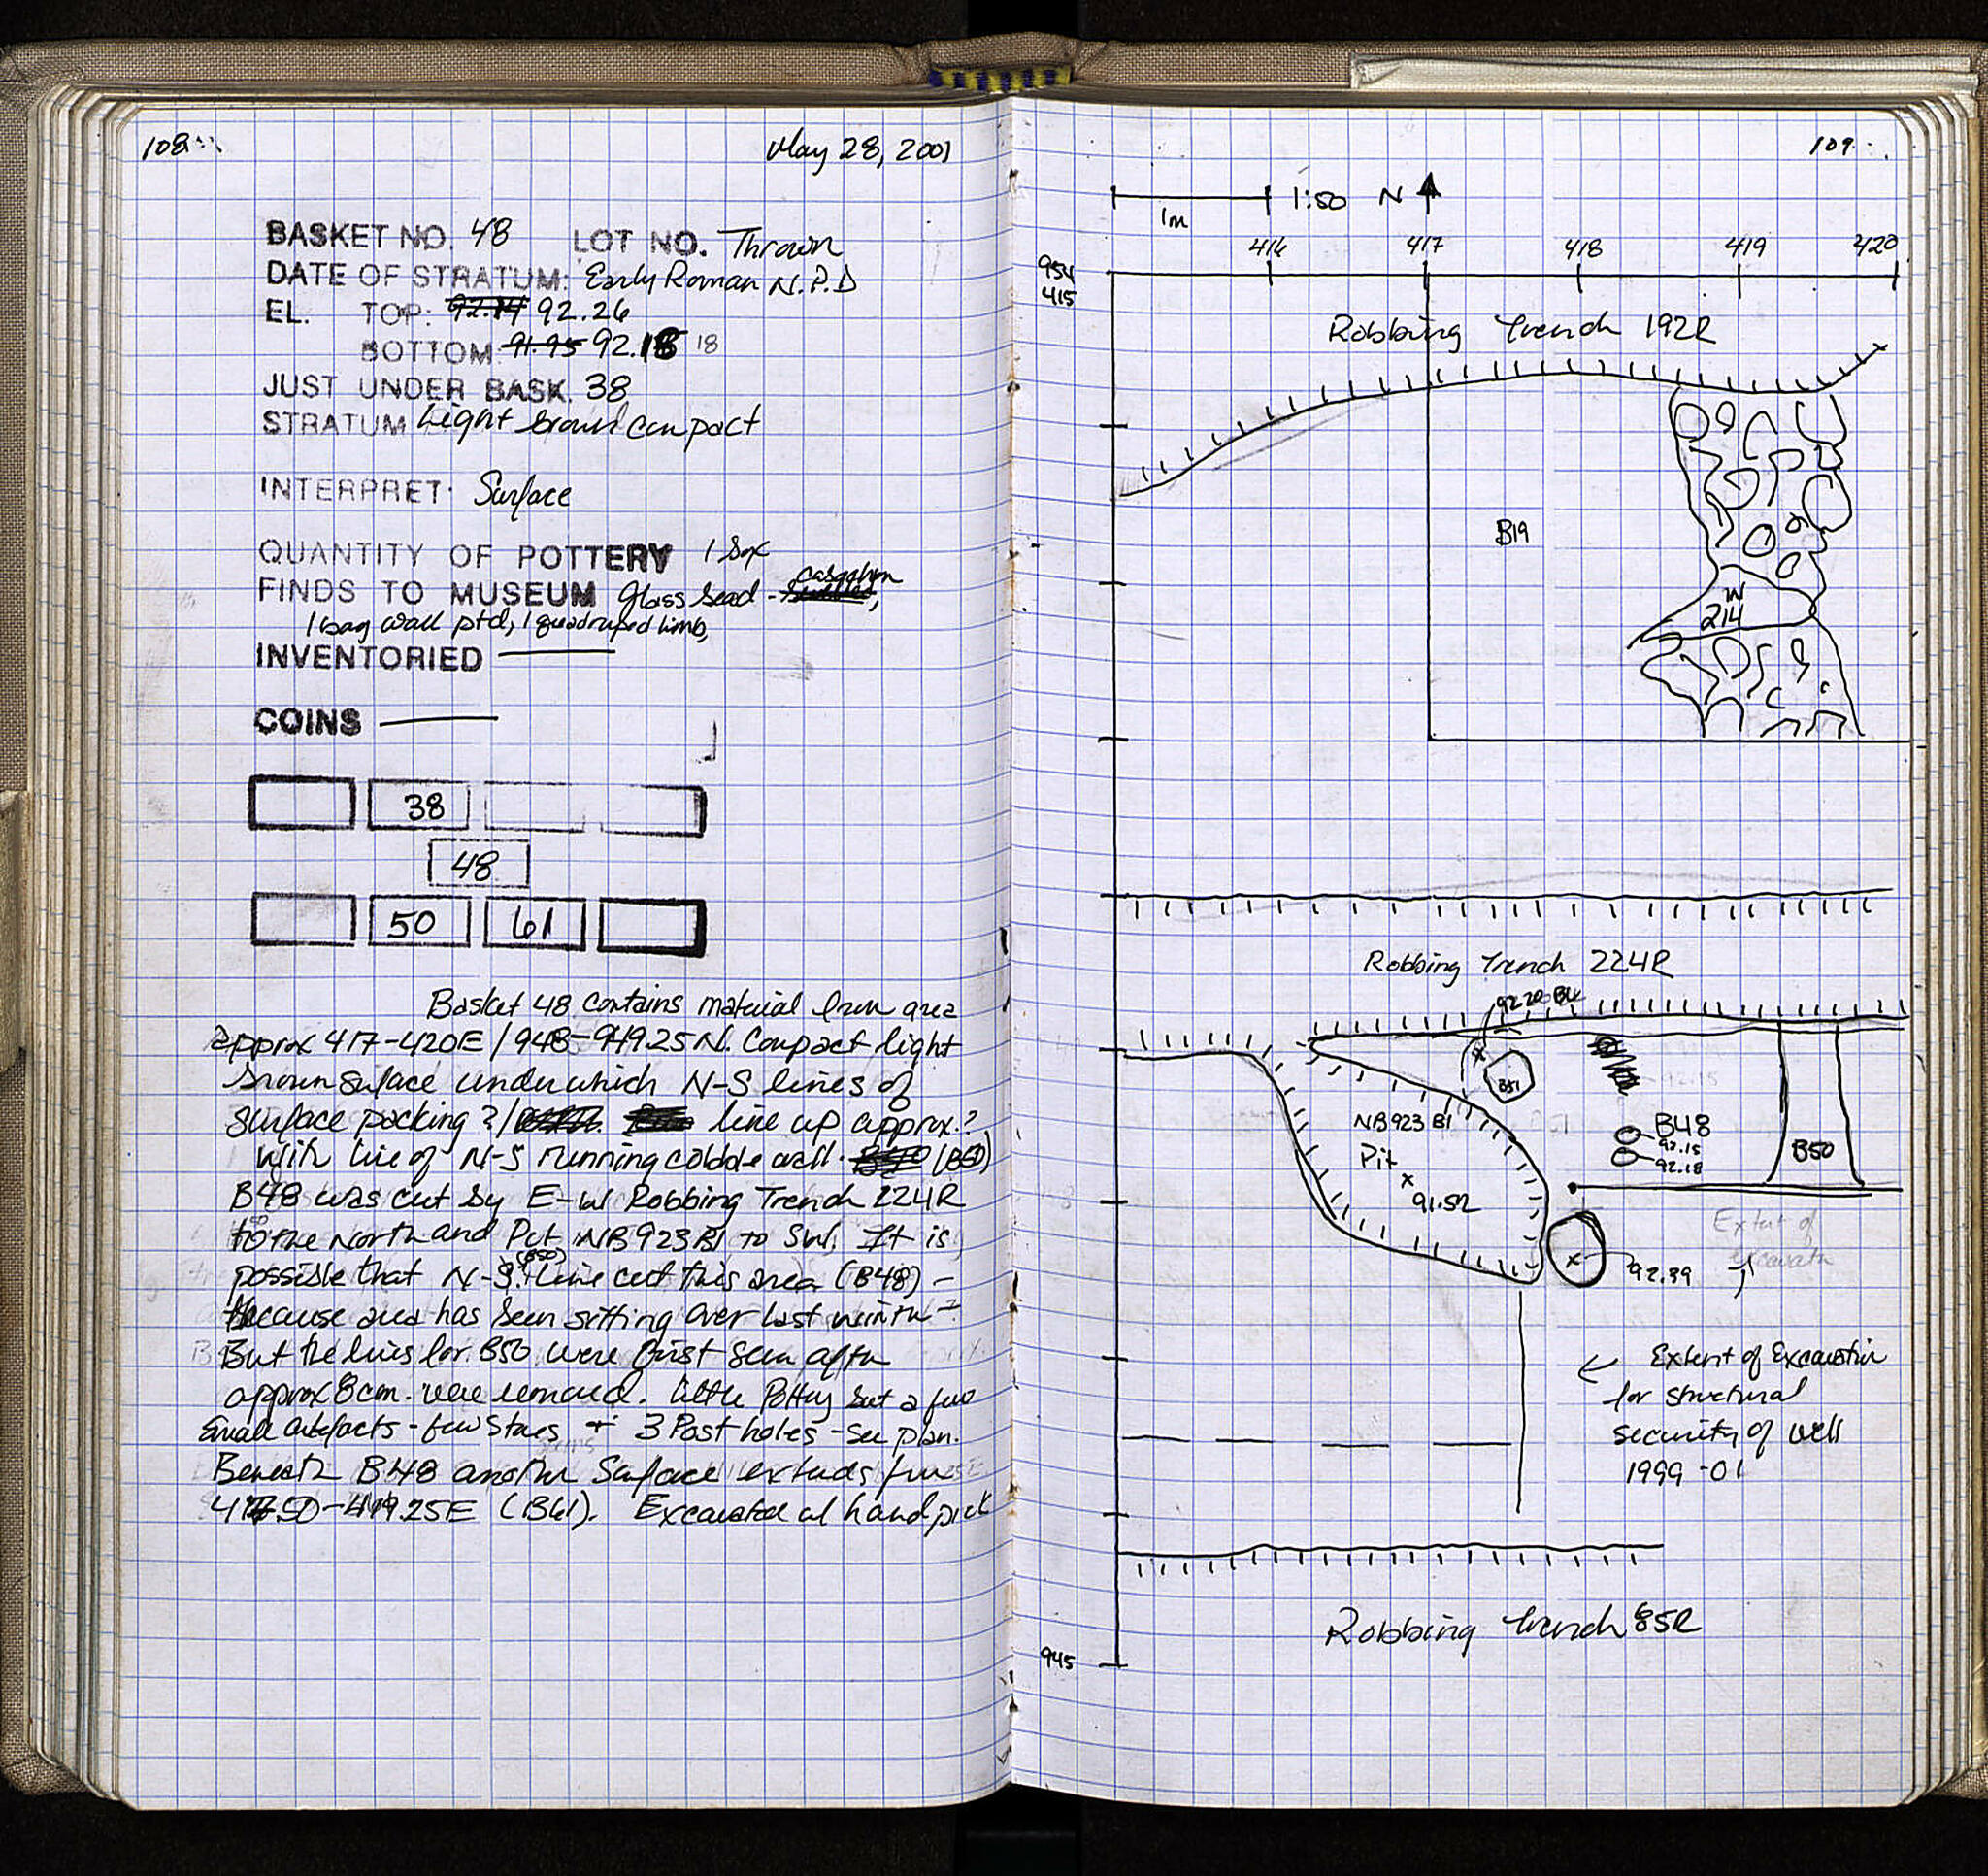 108
May 28, 2001
BASKET NO. 48 LOT NO. Thrown
DATE OF STRATUM: Early Roman N.P.D
EL. TOP: 92.26
BOTTOM 92.18 18
JUST UNDER BASK. 38
STRATUM Light brown compact
INTERPRET: Surface
QUANTITY OF POTTERY 1 box
FINDS TO MUSEUM glass bead -
1 bag wall ptd, 1 quadruped limb,
INVENTORIED
COINS
38
48
50 61
Basket 48 contains material from area
approx 417-420E / 948-949.25N. Compact light
brown surface under which N-S lines of
surface packing? / line up approx.?
with line of N-S running cobble wall. (B50)
B48 was cut by E-W Robbing Trench 224R
to the North and Pit NB923 B1 to SW. It is
possible that N-S (B50) line cut this area (B48) -
because area has been sitting over last winter -
But the lines for B50 were first seen after
approx 8cm. were removed. Little Pottery but a few
small artefacts - few stones + 3 Post holes - see plan.
Beneath B48 another surface extends from
417.50-419.25E (B61). Excavated w/ handpick
109
1m
1:50 N
416 417 418 419 420
954
415
Robbing Trench 192R
B19
W
214
Robbing Trench 224R
92.20
B51
92.15
NB923 B1
Pit
91.52
B48
92.15
92.18
B50
Extent of
92.39
Extent of Excavation
for structural
security of well
1999-01
Robbing Trench 85R
945